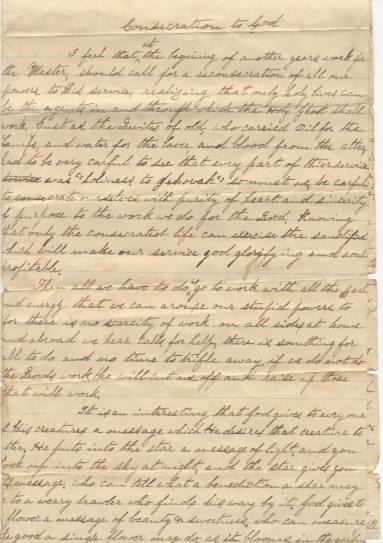 Consecration to God
I feel that at the begining of another years work for
the Master, should call for a reconsecration of all our
powers to His service, realizing, that only holy lives can
be the agents in and through which the Holy Ghost shall
work. Just as the Levites of old, who carried Oil for the
lamps, and water for the laver and blood from the alter,
had to be very carful to see that every part of their service
service was "Holiness to Jehovah" so must we be carful
to consecrate ourselves with purity of heart and sincerity
of purpose to the work we do for the Lord, Knowing
that only the consecrated life can exercise the sanctified
which will make our service god glorifying and soul
profitable.
Then all we have to do is go to work with all the zeal
and energy that we can arouse our stupid powers to
for there is no scarcity of work, on all sides at home
and abroad we hear calls for help, there is somthing for
all to do and no time to trifle away, if we do not do
the Lords work, He will put aid off and raise up those
that will work.
It is an interesting, that God gives to every one
of His creatures a message which He desires that creature to
utter, He puts into the star a message of light, and you
look up into the sky at night, and the star gives you
its message, who can tell what a benediction a star may
be to a weary travler who finds his way by it. God gives to
flower a message of beauty & sweetness, who can measure
the good a single flower may do, as it blooms in the garden